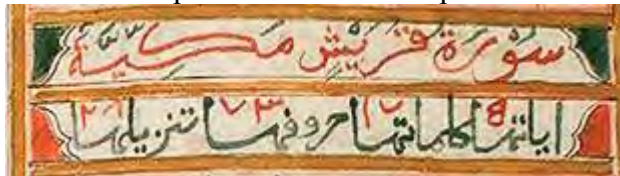 سورة قريش مكية
اياتها ٤ كلماتها ١٧ حروفها ٧٣ تنزيلها ٢٩